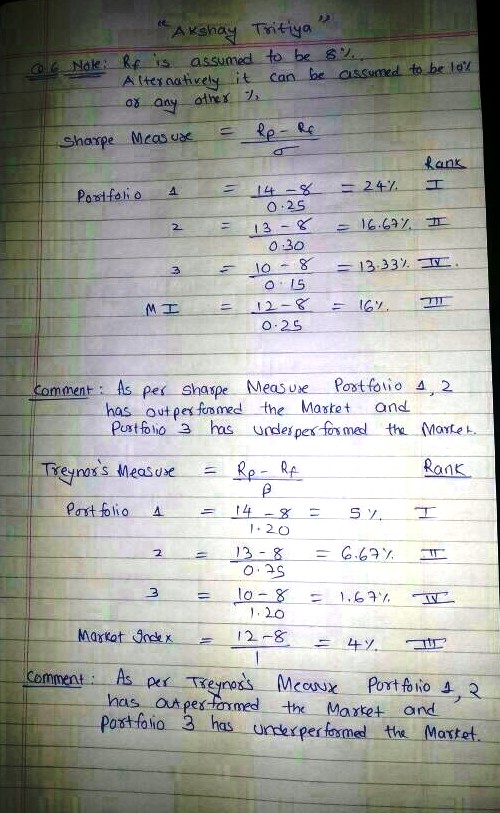 "Akshay Tritiya"
Q.6 Note: Rf is assumed to be 8%.
Alternatively it can be assumed to be 10%
or any other %.
Sharpe Measure = Rp - Rf / σ
Rank
Portfolio 1 = 14 - 8 / 0.25 = 24% I
2 = 13 - 8 / 0.30 = 16.67% II
3 = 10 - 8 / 0.15 = 13.33% IV.
M I = 12 - 8 / 0.25 = 16% III
Comment: As per Sharpe Measure Portfolio 1, 2
has outperformed the Market and
Portfolio 3 has underperformed the Market.
Treynor's Measure = Rp - Rf / β Rank
Portfolio 1 = 14 - 8 / 1.20 = 5% I
2 = 13 - 8 / 0.75 = 6.67% II
3 = 10 - 8 / 1.20 = 1.67% IV
Market Index = 12 - 8 / 1 = 4% III
Comment: As per Treynor's Meaux Portfolio 1, 2
has outperformed the Market and
Portfolio 3 has underperformed the Market.